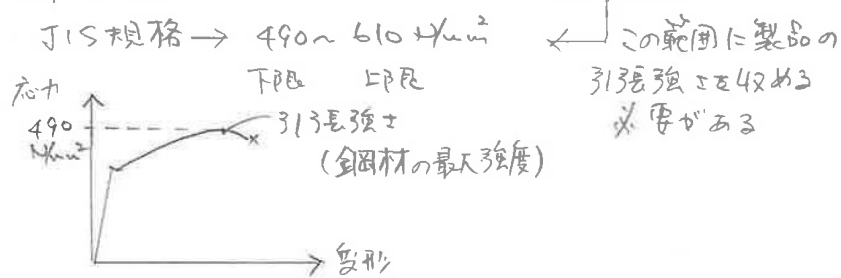 JIS規格→ 490～610 N/mm² ← この範囲に製品の
下限 上限 引張強さを収める
必要がある
応力
490
N/mm²
引張強さ
(鋼材の最大強度)
変形